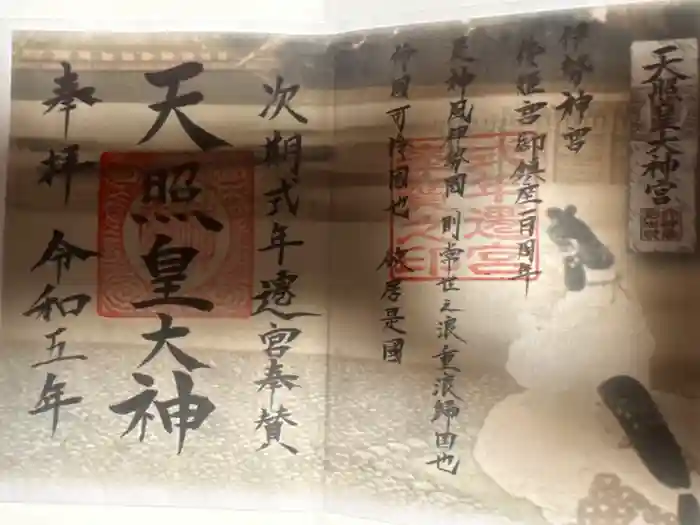 天照皇大神宮
伊勢神宮
倭姫宮御鎮座一百周年
是神風伊勢國則常世之浪重浪歸國也
傍國可怜國也 欲居是國
式年遷宮
之印
次期式年遷宮奉賛
天照皇大神
奉拝 令和五年